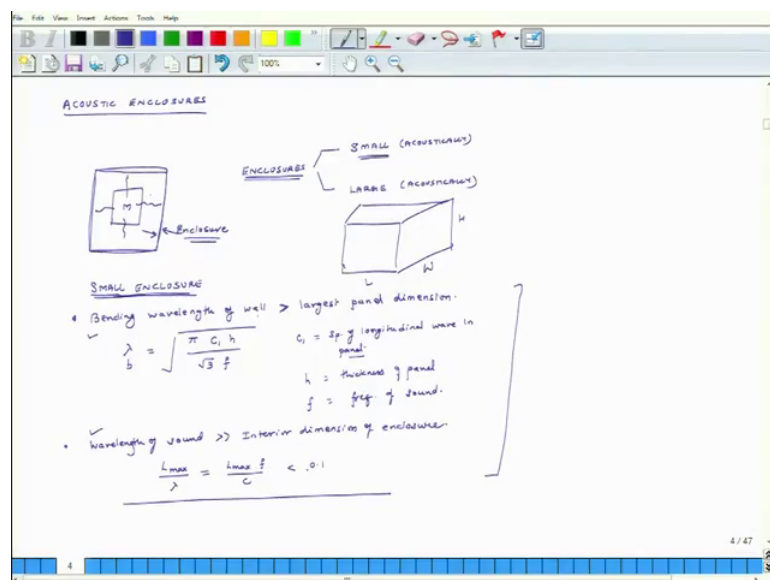 File Edit View Insert Actions Tools Help
B I
100%
ACOUSTIC ENCLOSURES
SMALL (ACOUSTICALLY)
ENCLOSURES
LARGE (ACOUSTICALLY)
M
Enclosure
H
W
L
SMALL ENCLOSURE
• Bending wavelength of wall > largest panel dimension.
λb = √(π C₁ h / √3 f)
C₁ = sp. of longitudinal wave in panel.
h = thickness of panel
f = freq. of sound.
• Wavelength of sound >> Interior dimension of enclosure.
Lmax / λ = Lmax f / c < .0.1
4 / 47
4